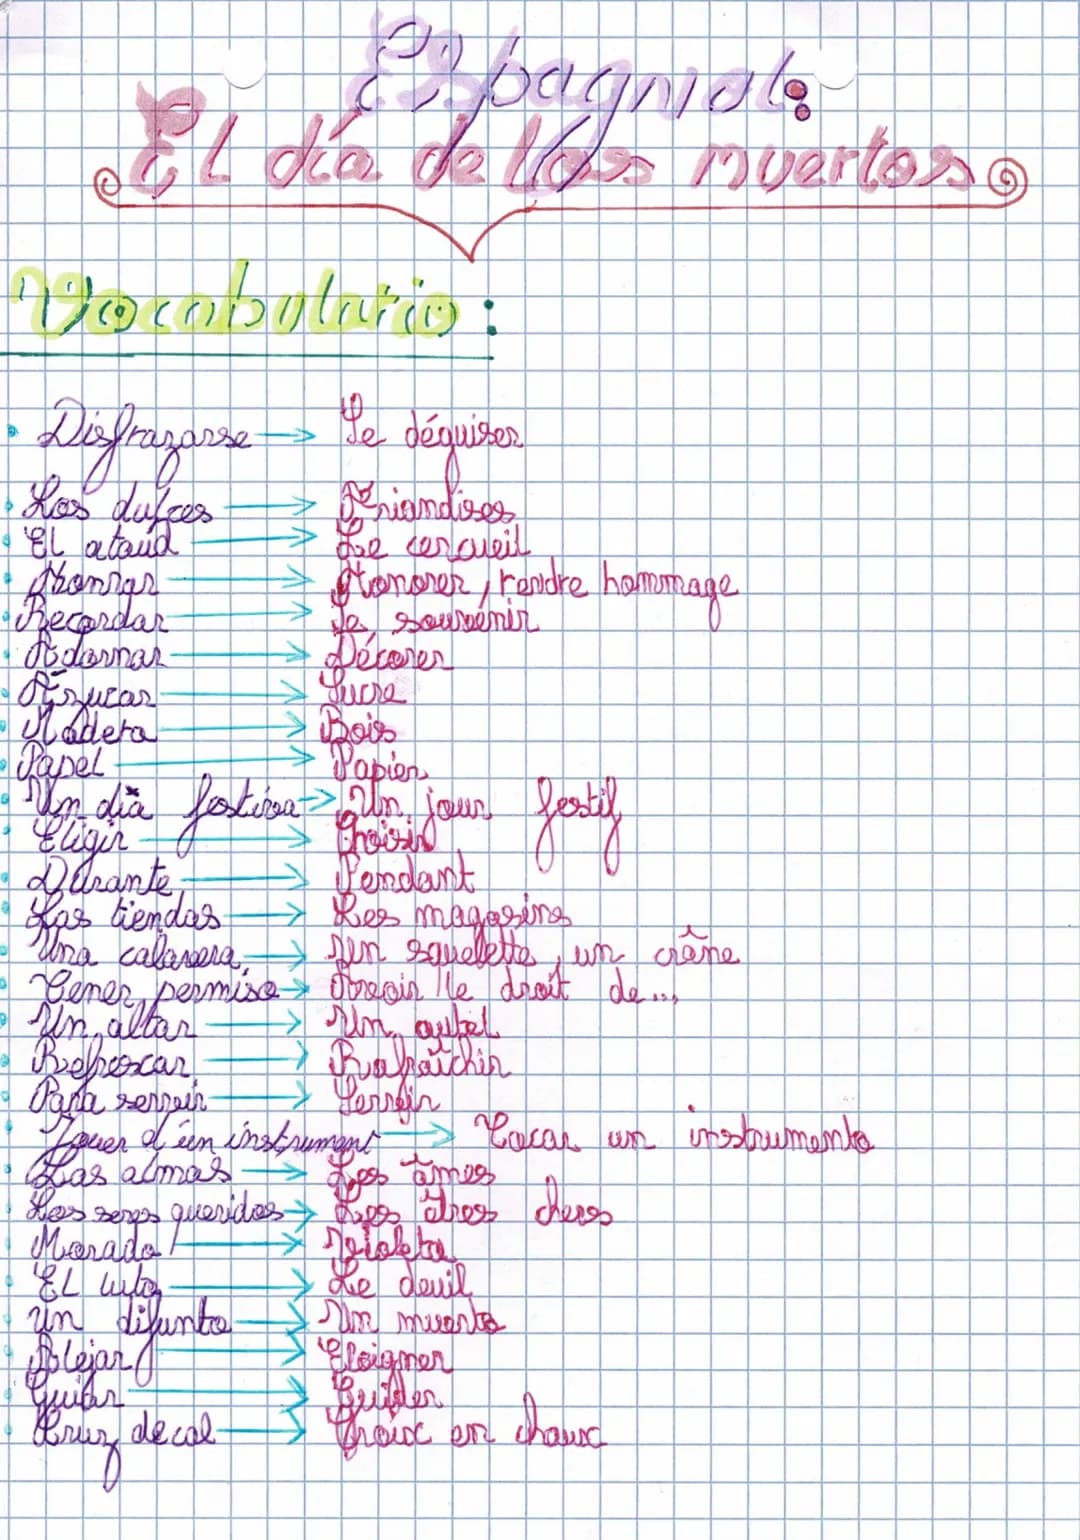 Espagniol:
El día de los muertos
Vocabulario :
Disfrazarse → Se déguiser
Los dulces → Friandises
El ataúd → Le cercueil
Honrar → Honorer, rendre hommage
Recordar → Se souvenir
Adornar → Décorer
Azucar → Sucre
Madera → Bois
Papel → Papier
Un dia festiva → Un jour festif
Eligir → Choisir
Durante → Pendant
Las tiendas → Les magasins
Una calavera → Un squelette, un crâne
Tener permiso → Avoir le droit de...
Un altar → Un autel
Refrescar → Rafraîchir
Para servir → Servir
Jouer d'un instrument → Tocar un instrumento
Las almas → Les âmes
Los seres queridos → Les êtres chers
Morado → Violeta
El luto → Le deuil
Un difunto → Un muerto
Alejar → Eloigner
Guiar → Guider
Cruz de cal → Croix en chaux